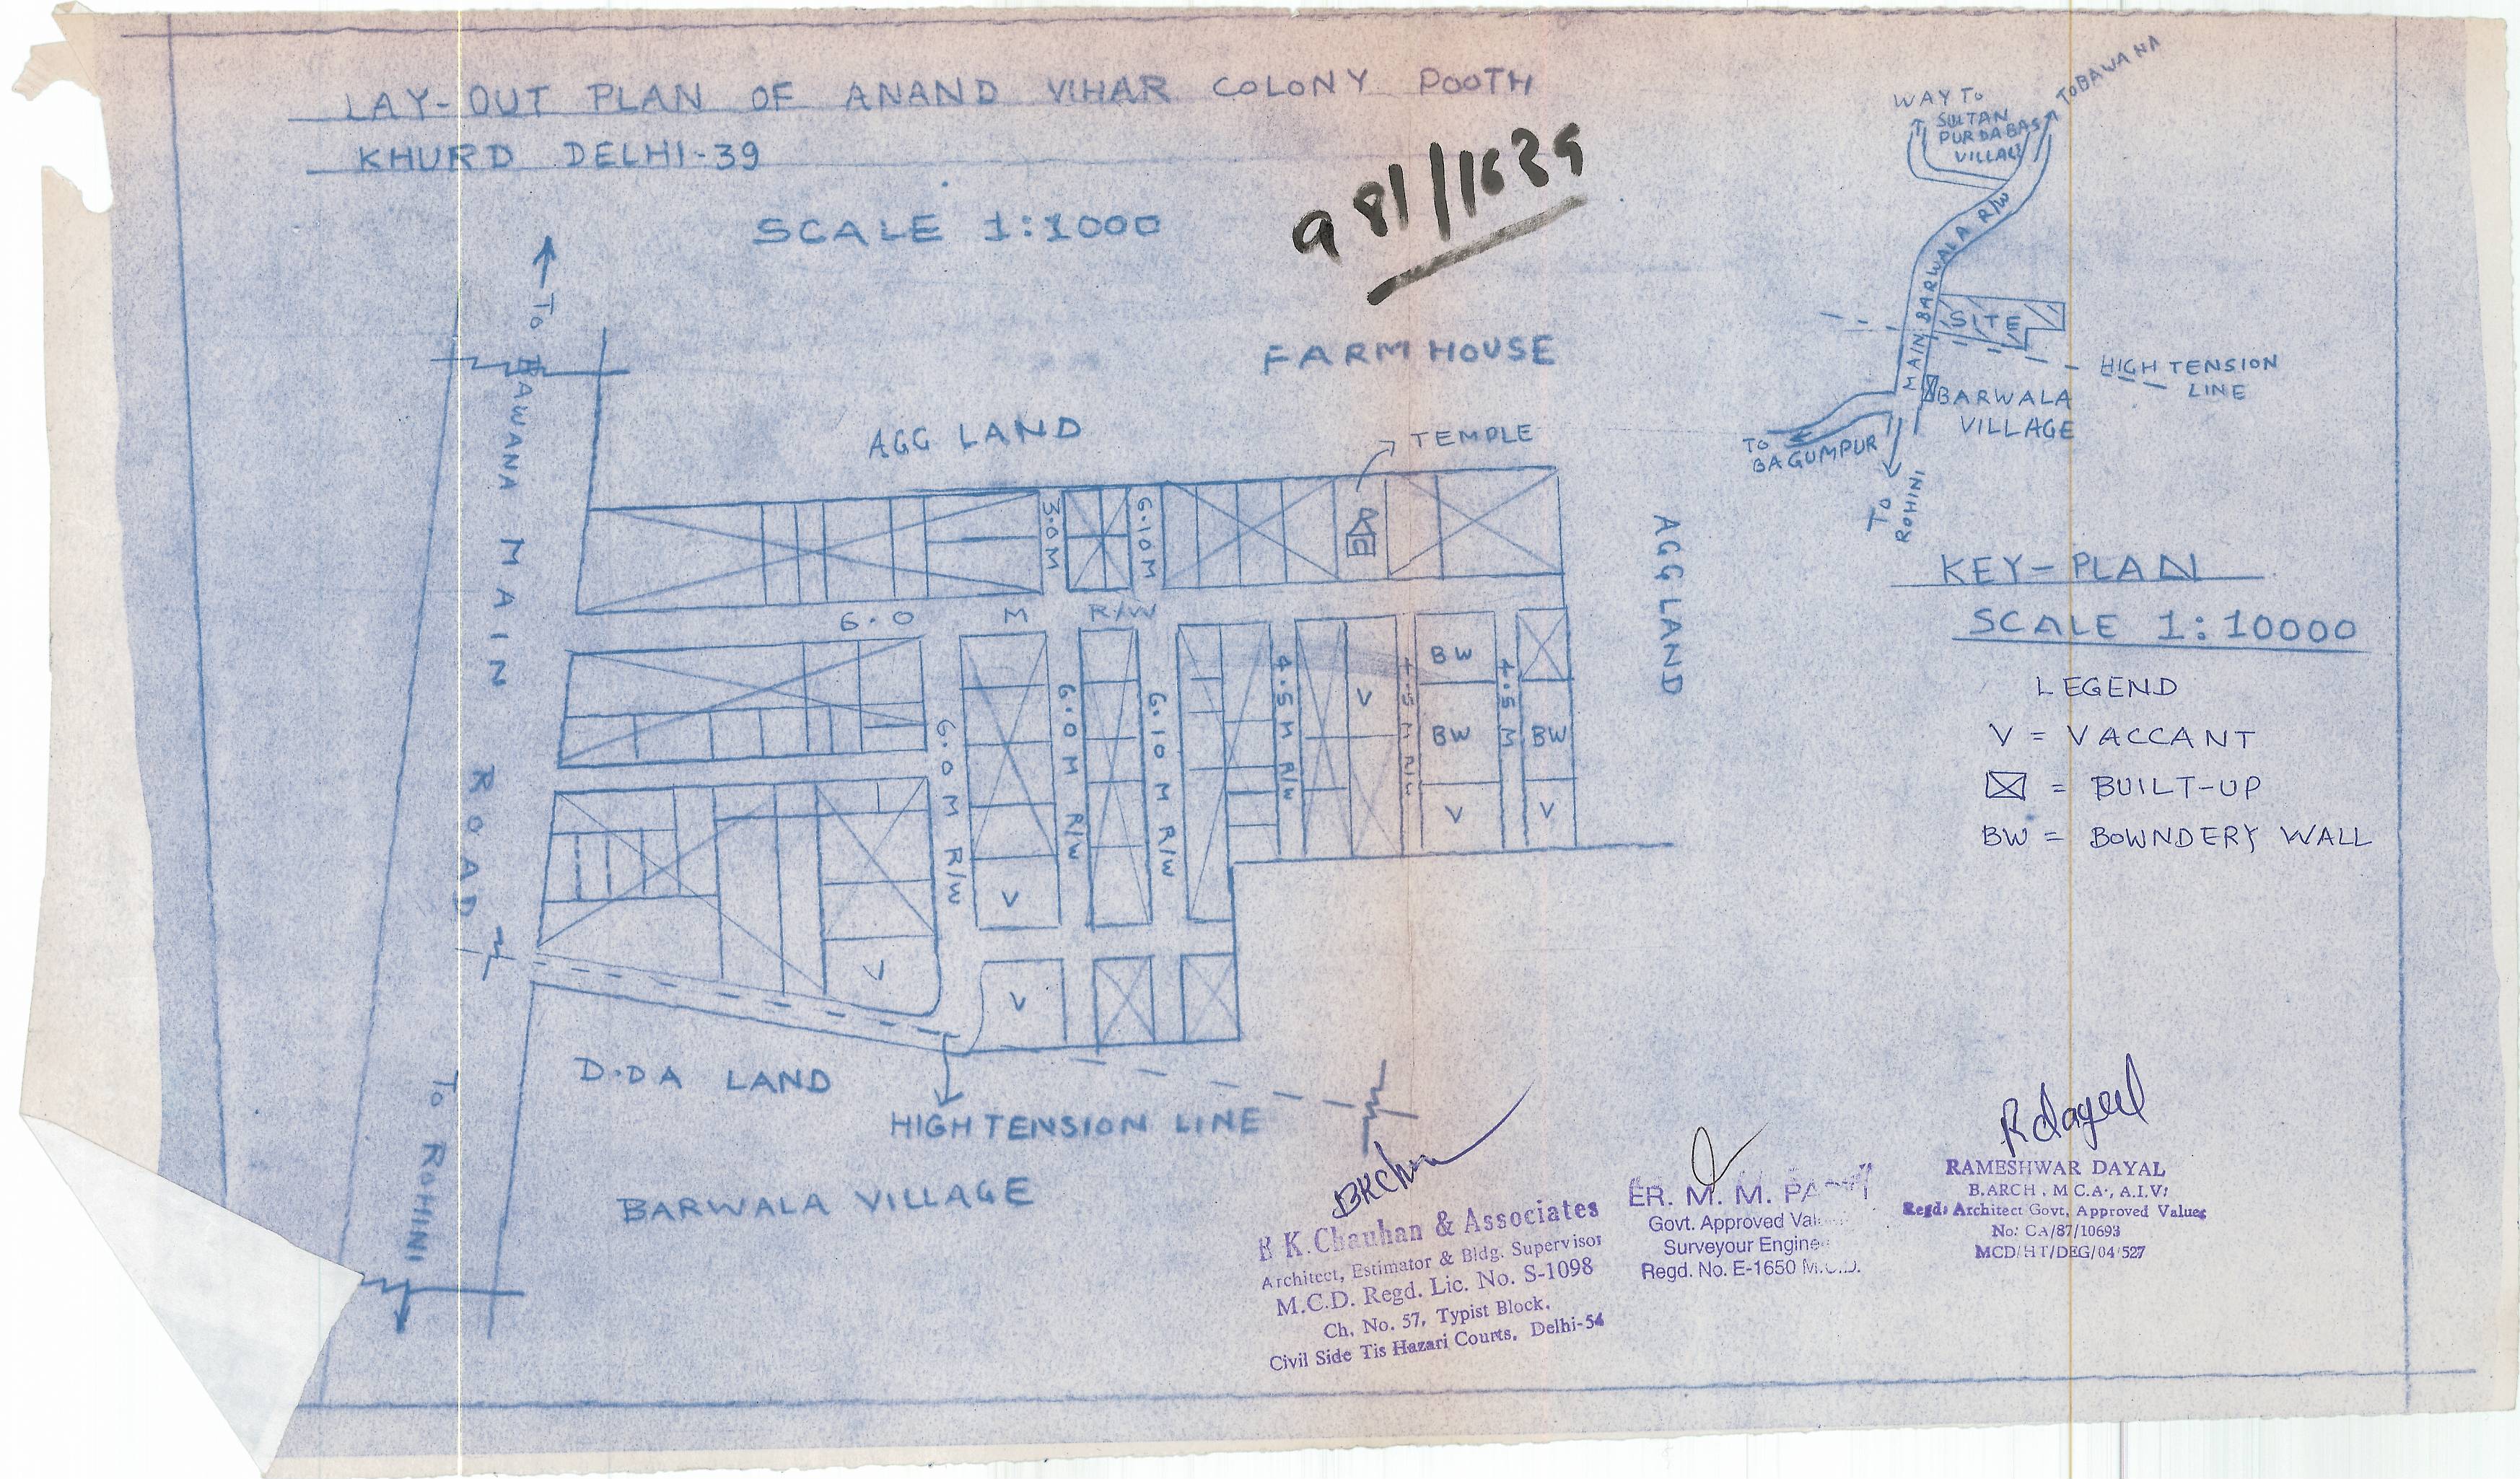 LAY-OUT PLAN OF ANAND VIHAR COLONY POOTH
KHURD DELHI-39
SCALE 1:1000
981/1639
TO BAWANA
MAIN ROAD
TO ROHINI
FARM HOUSE
AGG LAND
TEMPLE
AGG LAND
3.0M
6.10M
6.0 M R/W
6.0 M R/W
6.0 M R/W
6.10 M R/W
4.5 M R/W
4.5 M R/W
4.5 M
BW
V
BW
BW
V
V
V
V
V
D.D A LAND
HIGH TENSION LINE
BARWALA VILLAGE
WAY TO
SULTAN
PUR DABAS
VILLAGE
TO BAWANA
MAIN BARWALA R/W
SITE
HIGH TENSION
LINE
BARWALA
VILLAGE
TO
BAGUMPUR
TO
ROHINI
KEY-PLAN
SCALE 1:10000
LEGEND
V = VACCANT
= BUILT-UP
BW = BOWNDERY WALL
K. Chauhan & Associates
Architect, Estimator & Bldg. Supervisor
M.C.D. Regd. Lic. No. S-1098
Ch. No. 57, Typist Block,
Civil Side Tis Hazari Courts, Delhi-54
ER. M. M.
Govt. Approved
Surveyour
Regd. No. E-1650 M.C.D.
Rdayal
RAMESHWAR DAYAL
B.ARCH, M.C.A., A.I.V.
Regd: Architect Govt, Approved Valuer
No: CA/87/10693
MCD/HT/DEG/04/527